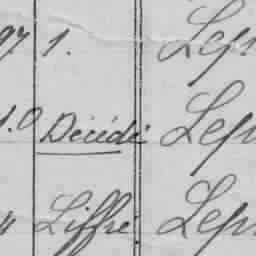 97 1. Lep
1.0 Décédé Lep
" Liffré Lep